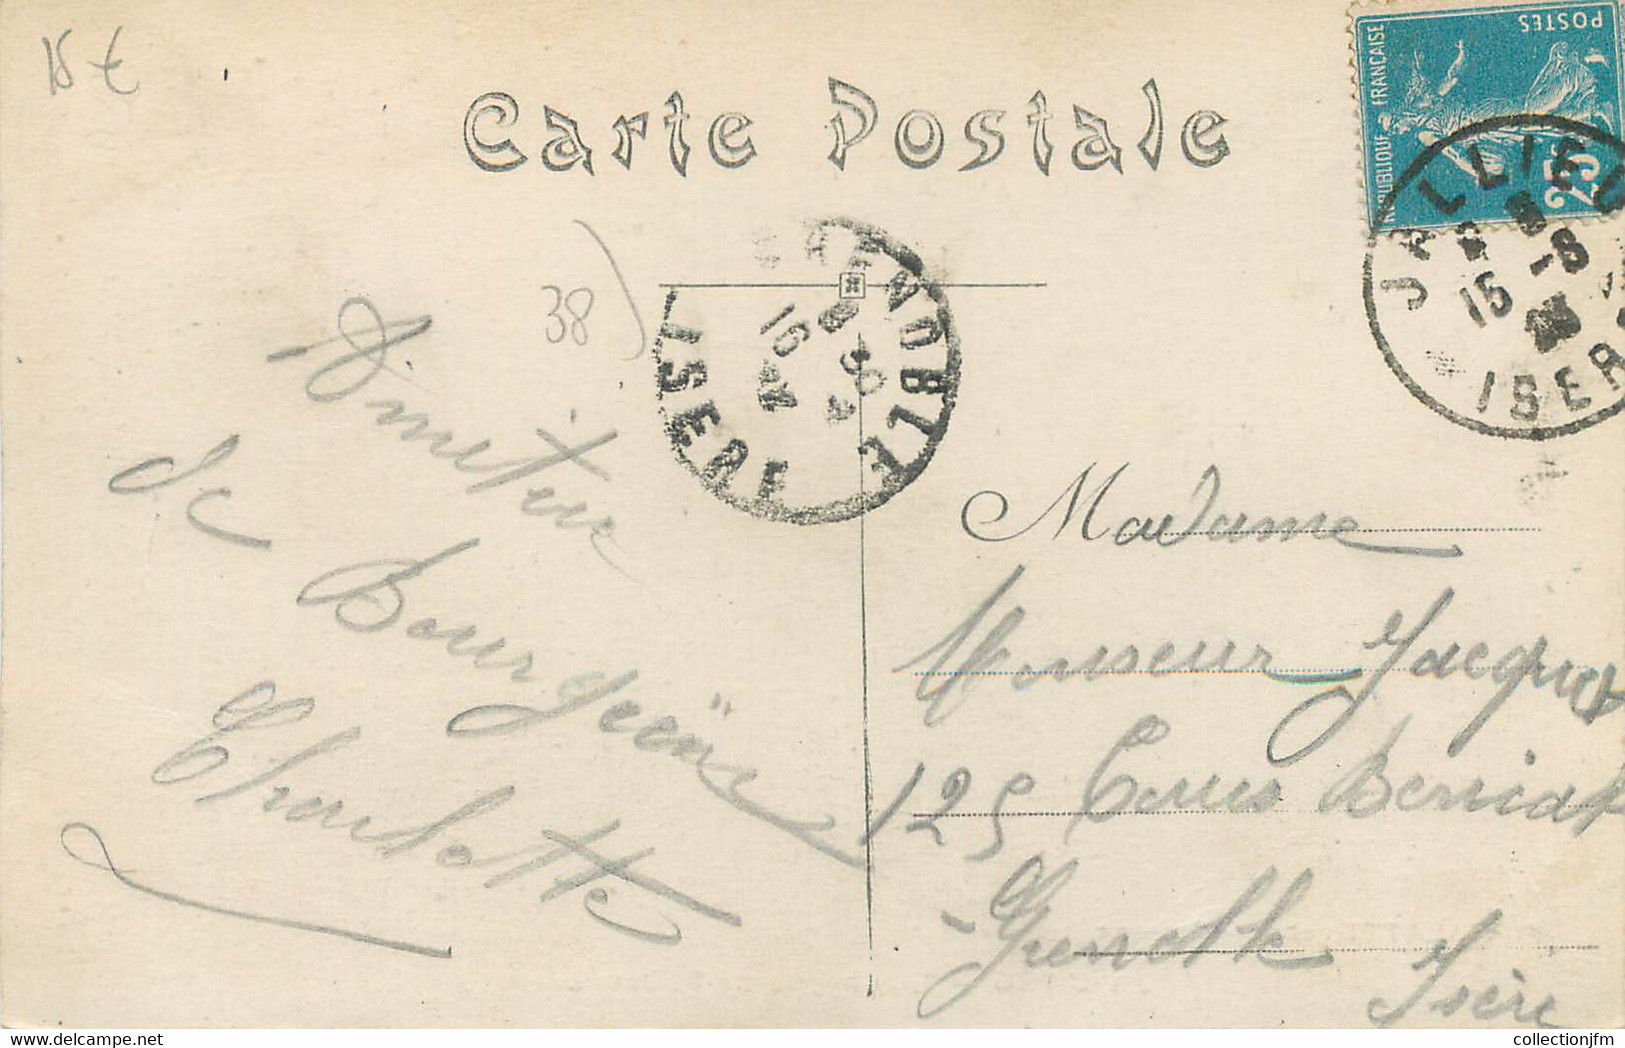 15 €
Carte Postale
REPUBLIQUE FRANÇAISE
POSTES
25
JALLIEU
15 -8
ISERE
GRENOBLE
16
ISERE
38
Amitiés
de Bourgoin
Charlotte
Madame
Monsieur Jacquet
125 Cours Berriat
Grenoble
Isère
collectionjfm